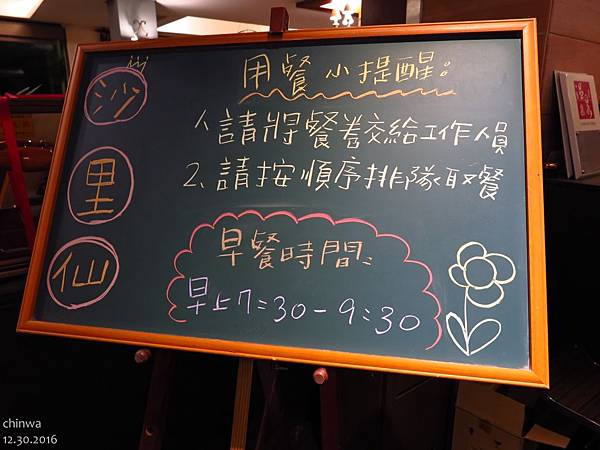 沙里仙
用餐小提醒：
1、請將餐卷交給工作人員
2、請按順序排隊取餐
早餐時間：
早上7:30-9:30
chinwa
12.30.2016